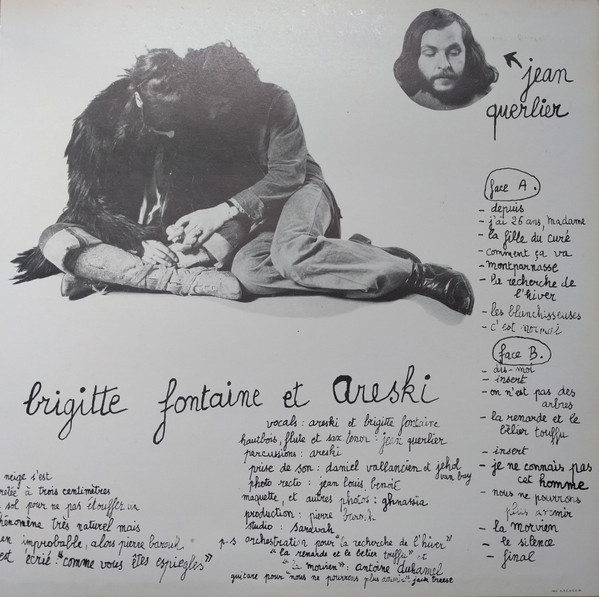 jean
querlier
face A.
- depuis
- j'ai 26 ans, madame
- la fille du curé
- comment ça va
- montparnasse
- la recherche de
l'hiver
- les blanchisseuses
- c'est normal
face B.
- dis-moi
- insert
- on n'est pas des
arbres
- la renarde et le
bélier touffu
- insert
- je ne connais pas
cet homme
- nous ne pourrons
plus
- la morvien
- le silence
- final
brigitte fontaine et areski
vocals: areski et brigitte fontaine
hautbois, flute et sax. tenor: jean querlier
percussions: areski
prise de son: daniel vallancien et jehol
photo recto: jean louis benoit
maquette, et autres photos: ghnassia
production: pierre
studio: saravah
p.s orchestration pour "la recherche de l'hiver"
"la renarde et le belier touffu" et
"la morvien": antoine duhamel
guitare pour "nous ne pourrons plus
neige s'est
à trois centimètres
sol pour ne pas étouffer un
très naturel mais
improbable, alors pierre barouh
écrié: "comme vous êtes espiegles"